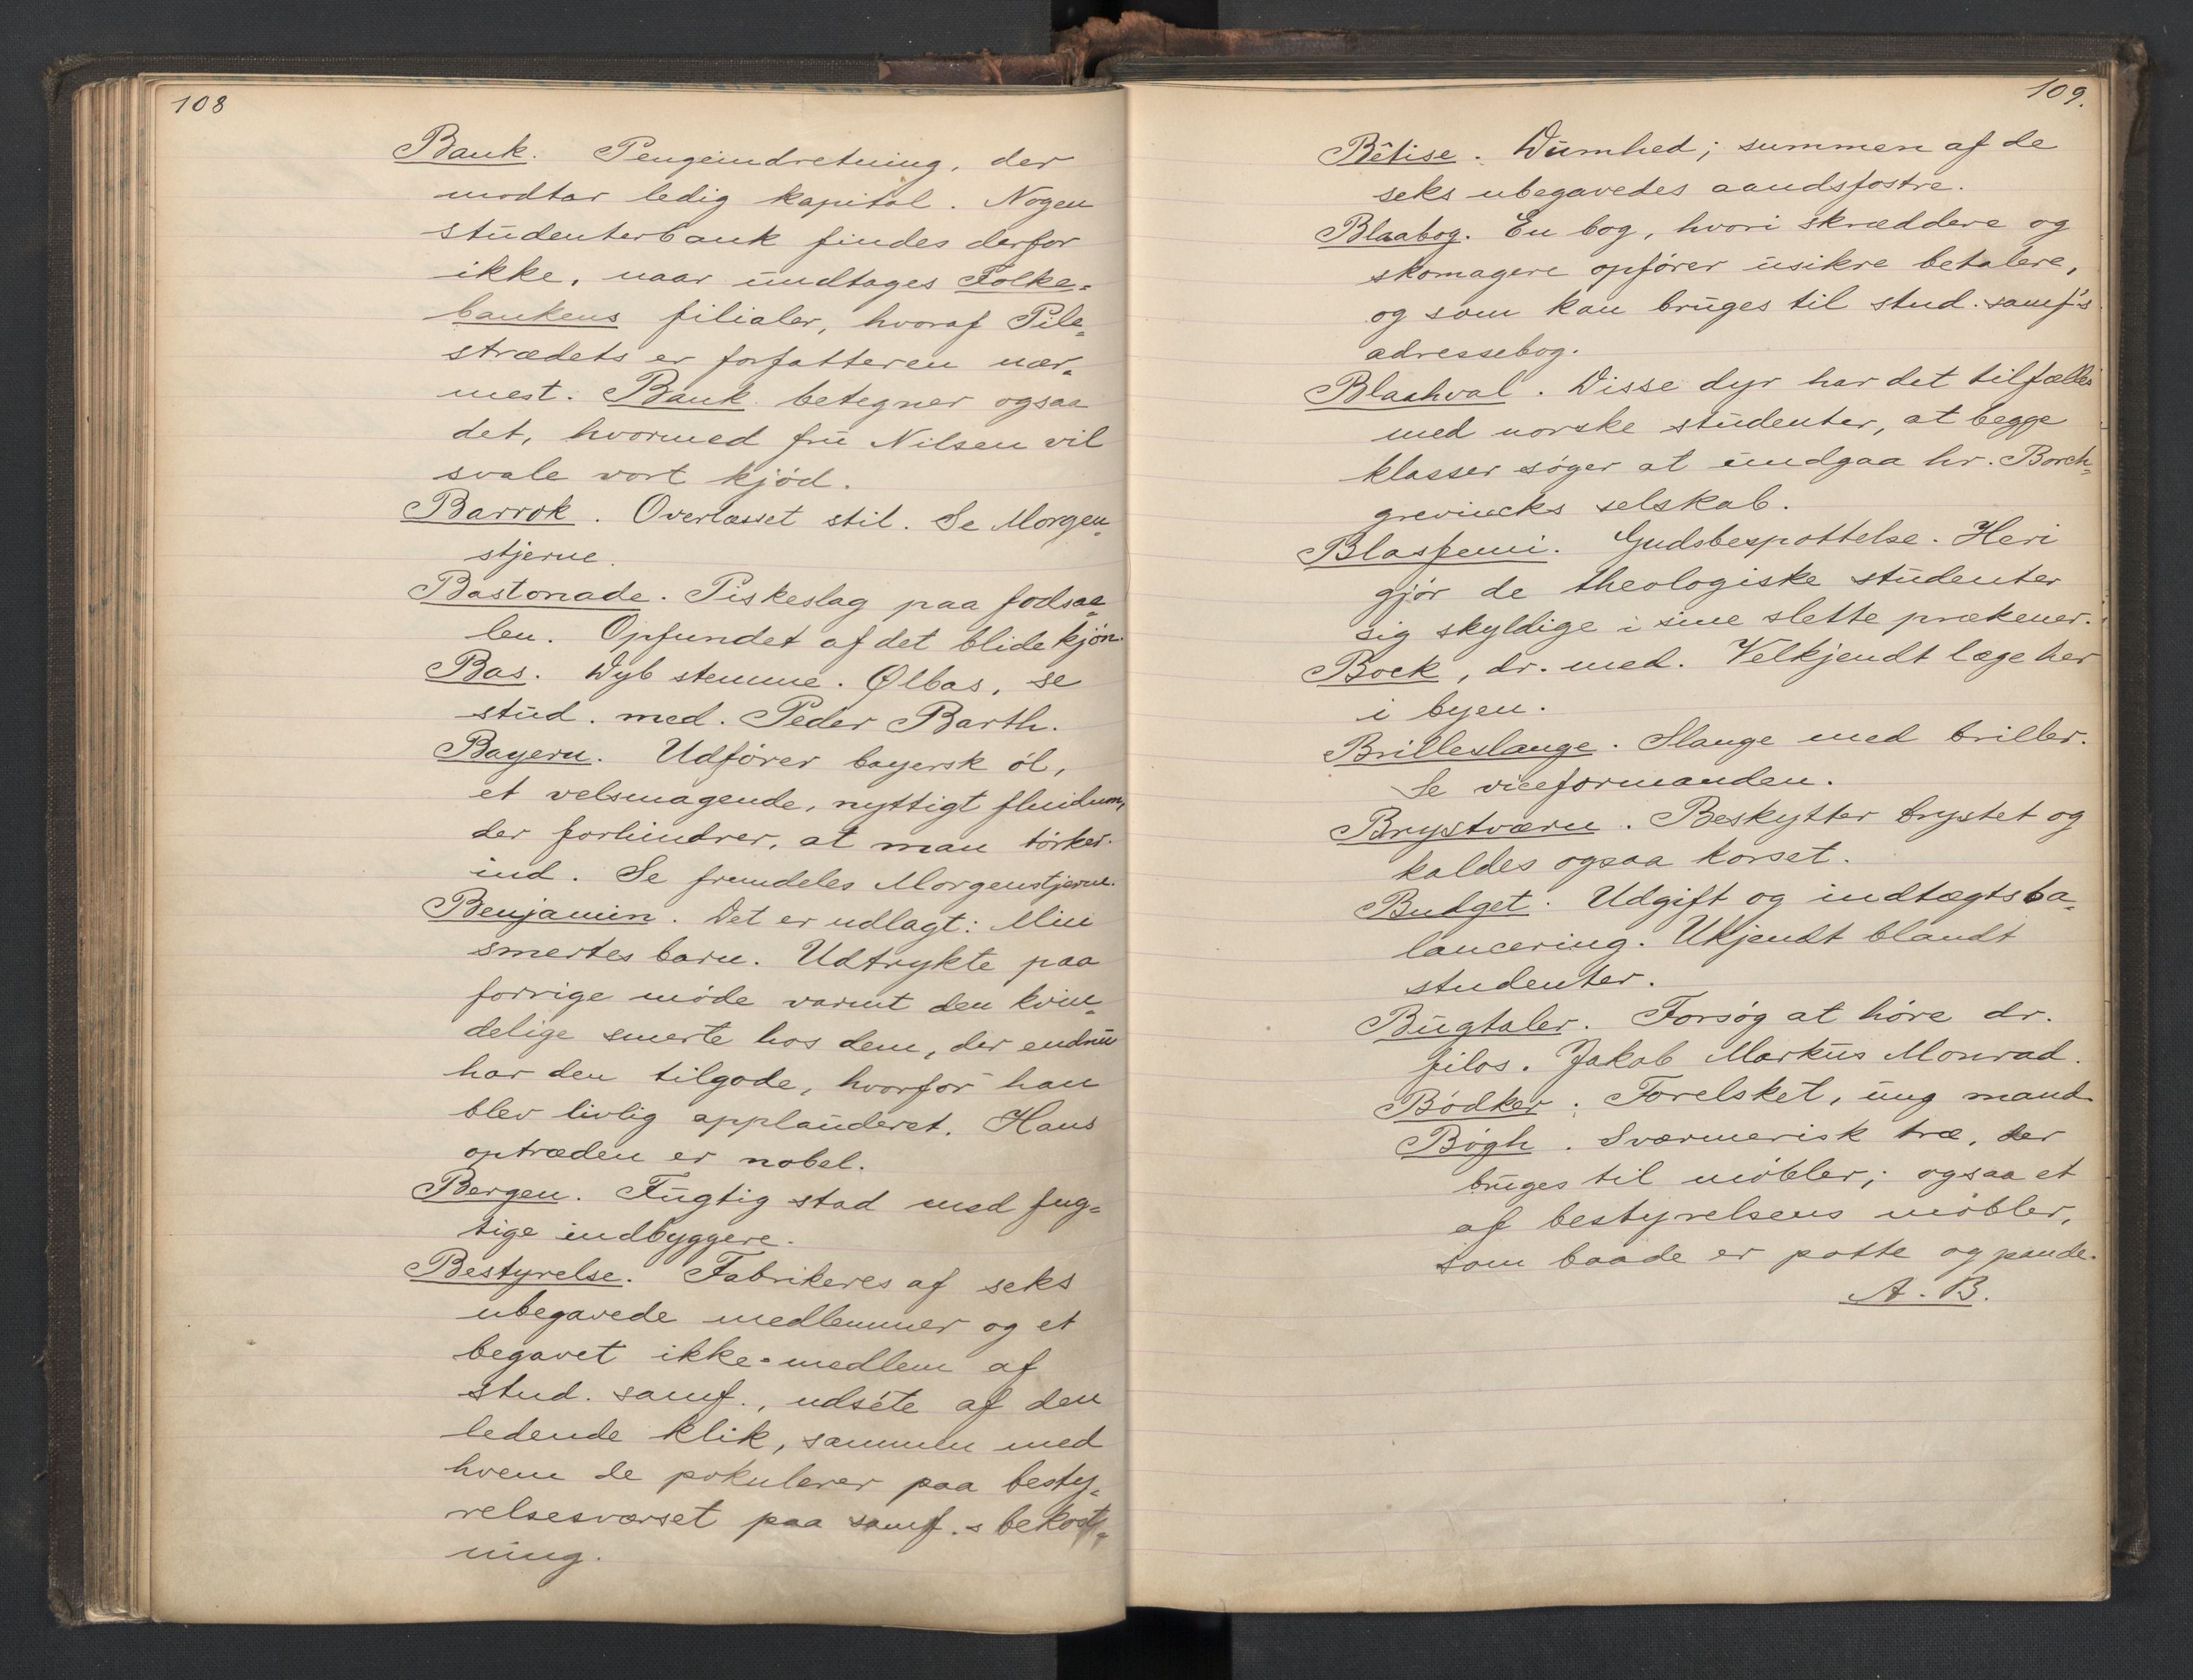 108
Bank. Pengeindretning, der
modtar ledig kapital. Nogen
studenterbank findes derfor
ikke, naar undtages Folke-
bankens filialer, hvoraf Pile-
strædets er forfatteren nær-
mest. Bank betegner ogsaa
det, hvormed fru Nilsen vil
svale vort kjód.
Barrok. Overlæsset stil. Se Morgen-
stjerne.
Bastonade. Piskeslag paa fodsaa-
len. Opfundet af det blide kjón.
Bas. Dyb stemme. Ølbas, se
stud. med. Peder Barth.
Bayern. Udfórer bayersk ól,
et velsmagende, nyttigt fluidum,
der forhindrer, at man tórker
ind. Se fremdeles Morgenstjerne.
Benjamin. Det er udlagt: Min
smertes barn. Udtrykte paa
forrige móde varmt den kvin-
delige smerte hos dem, der endnu
har den tilgode, hvorfor han
blev livlig applauderet. Hans
optræden er nobel.
Bergen. Fugtig stad med fug-
tige indbyggere.
Bestyrelse. Fabrikeres af seks
ubegavede medlemmer og et
begavet ikke-medlem af
stud. samf., udséte af den
ledende klik, sammen med
hvem de pokulerer paa besty-
relsesværset paa samf.s bekost-
ning.
109.
Bêtise. Dumhed; summen af de
seks ubegavedes aandsfostre.
Blaabog. En bog, hvori skræddere og
skomagere opfórer usikre betalere,
og som kan bruges til stud. samf's
adressebog.
Blaahval. Disse dyr har det tilfælles
med norske studenter, at begge
klasser sóger at undgaa hr. Borch-
grevincks selskab.
Blasfemi. Gudsbespottelse. Heri
gjór de theologiske studenter
sig skyldige i sine slette prækener.
Bock, dr. med. Velkjendt læge her
i byen.
Brilleslange. Slange med briller.
Se viceformanden.
Brystværn. Beskytter brystet og
kaldes ogsaa korset.
Budget. Udgift og indtægtsba-
lancering. Ukjendt blandt
studenter.
Bugtaler. Forsóg at hóre dr.
filos. Jakob Markus Monrad.
Bódker. Forelsket, ung mand.
Bógh. Sværmerisk træ, der
bruges til móbler; ogsaa et
af bestyrelsens móbler,
som baade er potte og pande.
A. B.